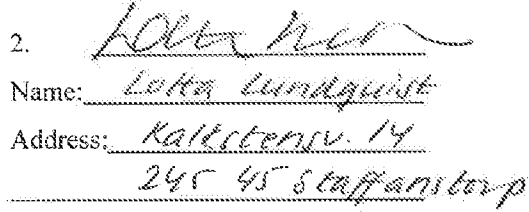 2. Lotta
Name: Lotta Lundquist
Address: Kalkstensv. 14
245 45 Staffanstorp